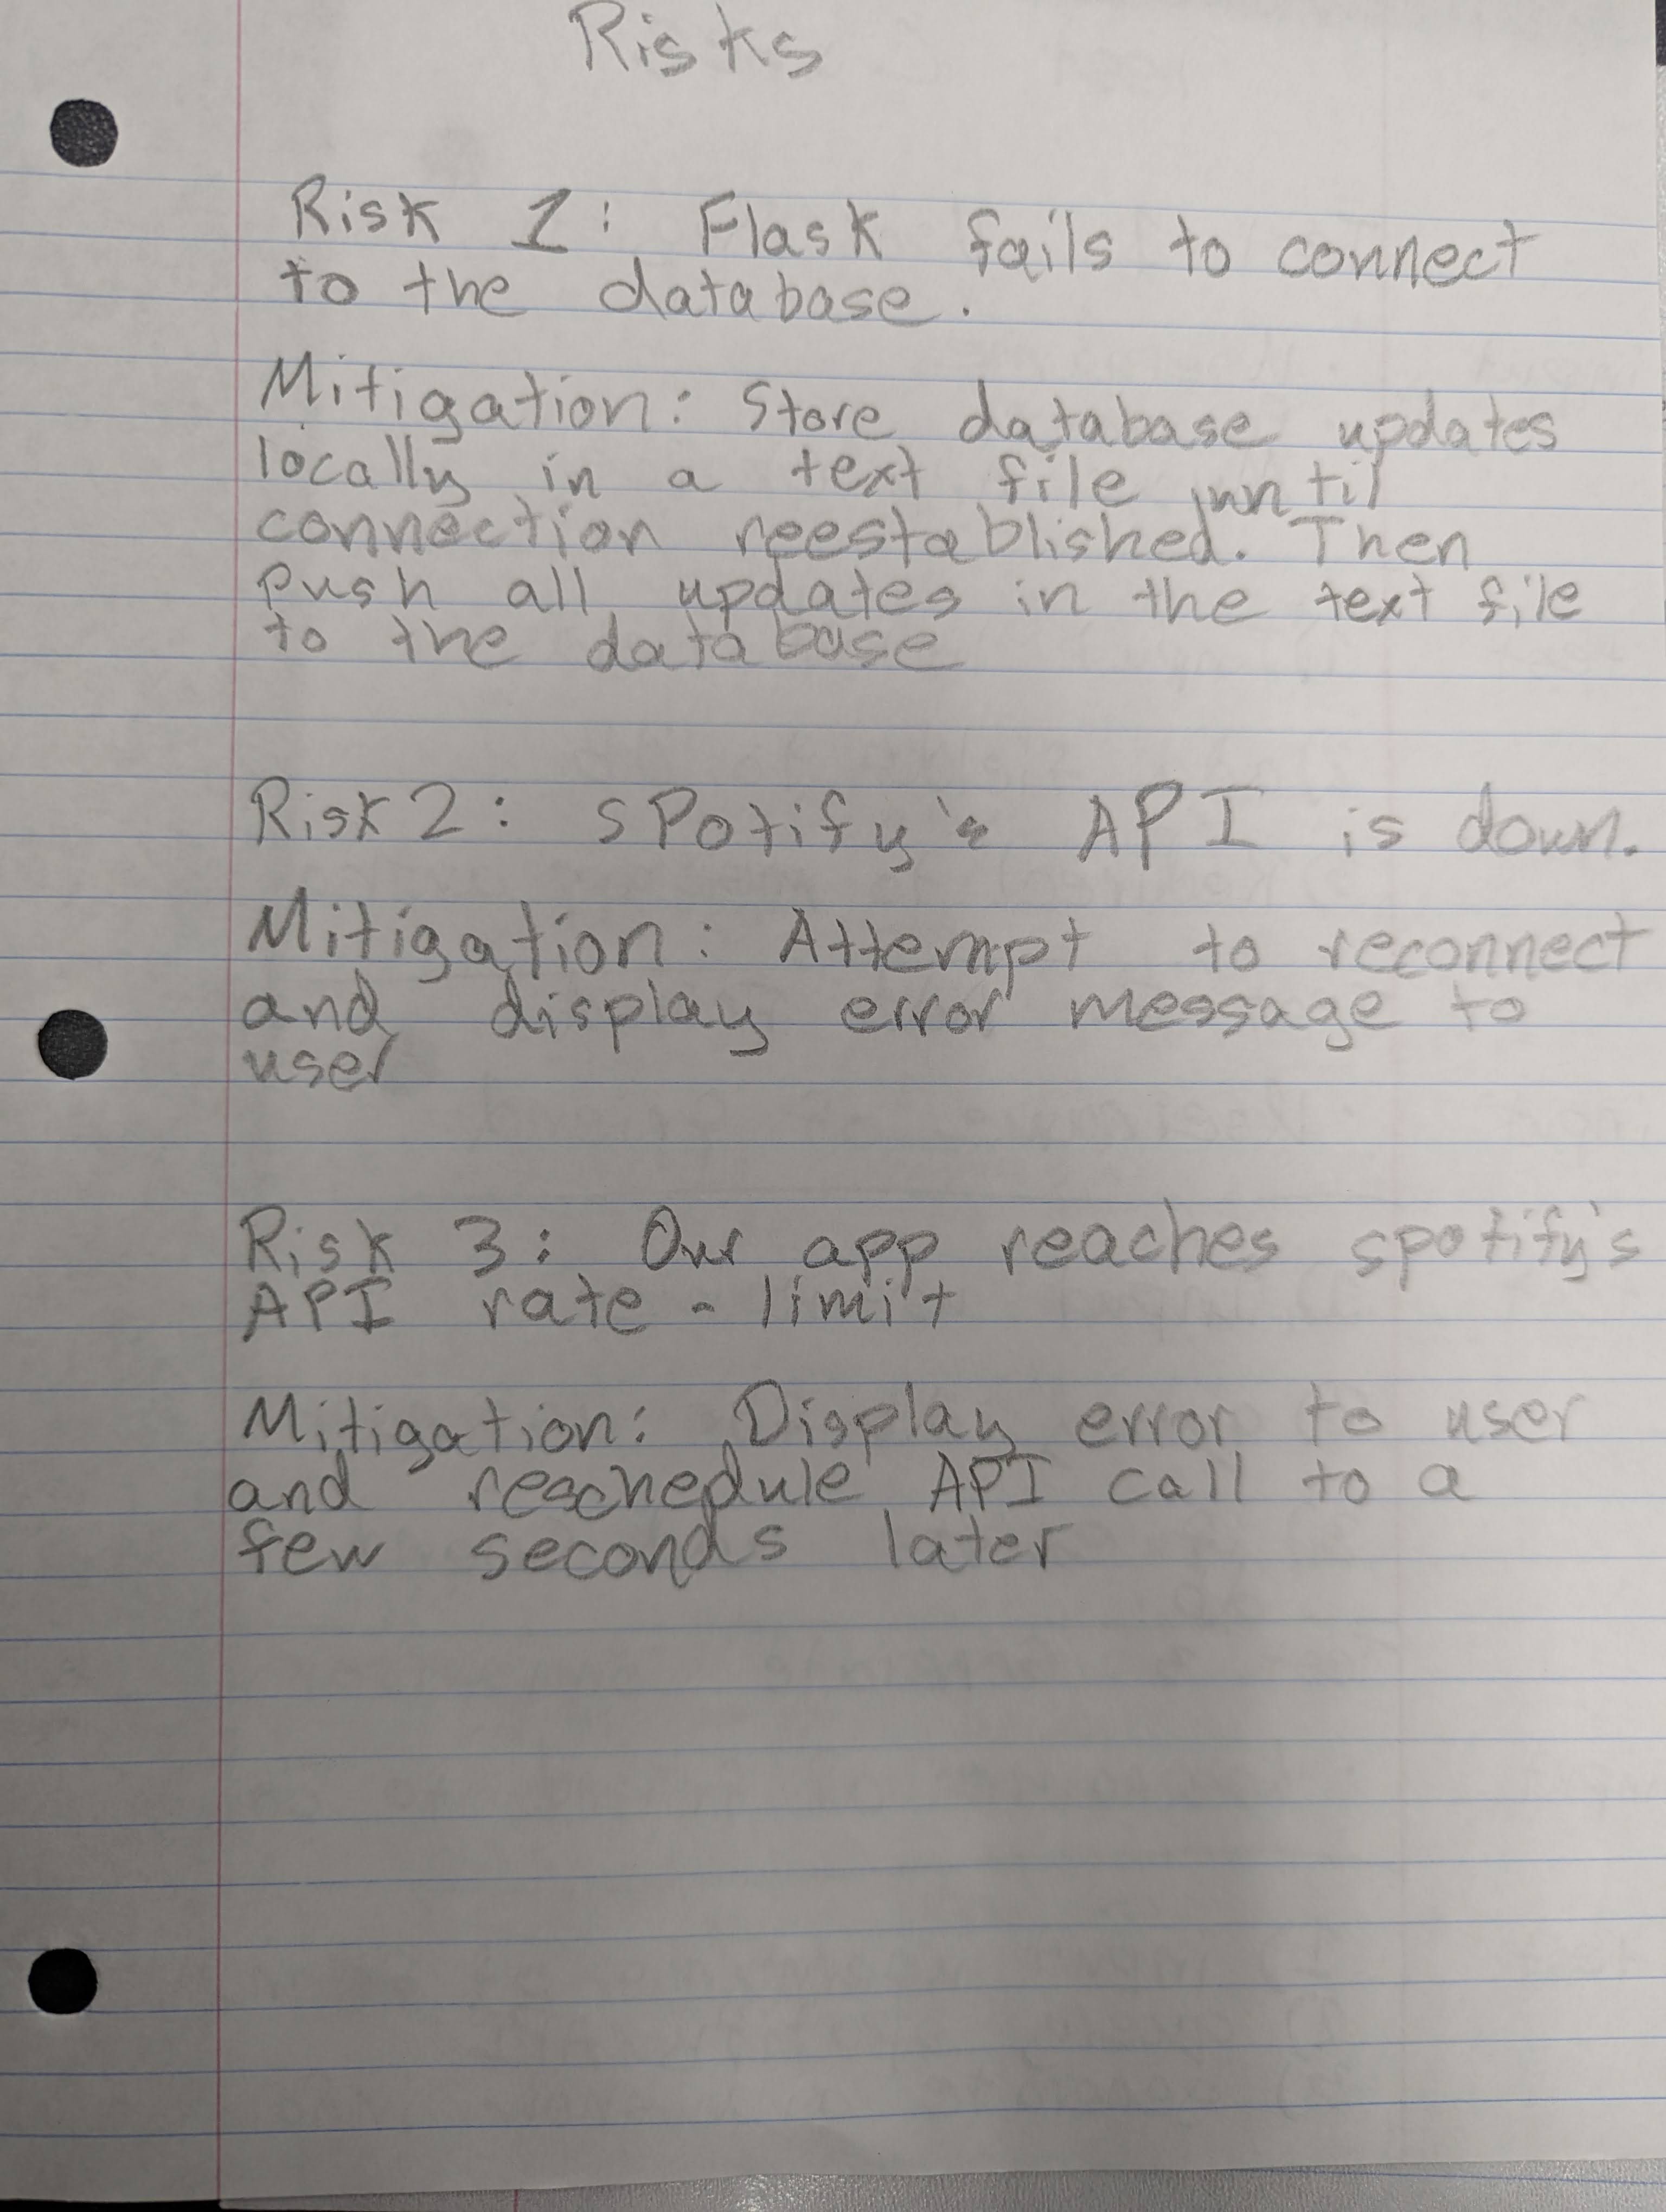 Risks
Risk 1: Flask fails to connect
to the database.
Mitigation: Store database updates
locally in a text file until
connection reestablished. Then
push all updates in the text file
to the database
Risk 2: sPotify's API is down.
Mitigation: Attempt to reconnect
and display error message to
user
Risk 3: Our app reaches spotify's
API rate-limit
Mitigation: Display error to user
and reschedule API call to a
few seconds later